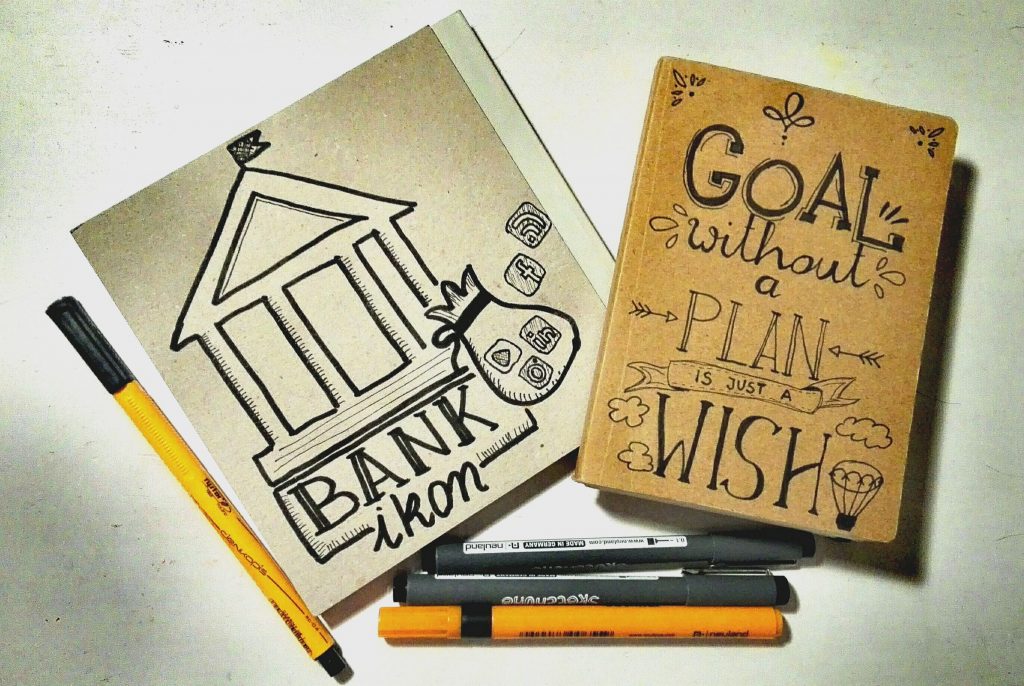 BANK
ikon
in
f
GOAL
without
a
PLAN
IS JUST A
WISH
neuland MADE IN GERMANY www.neuland.com 0.1
SKETCHONE
neuland